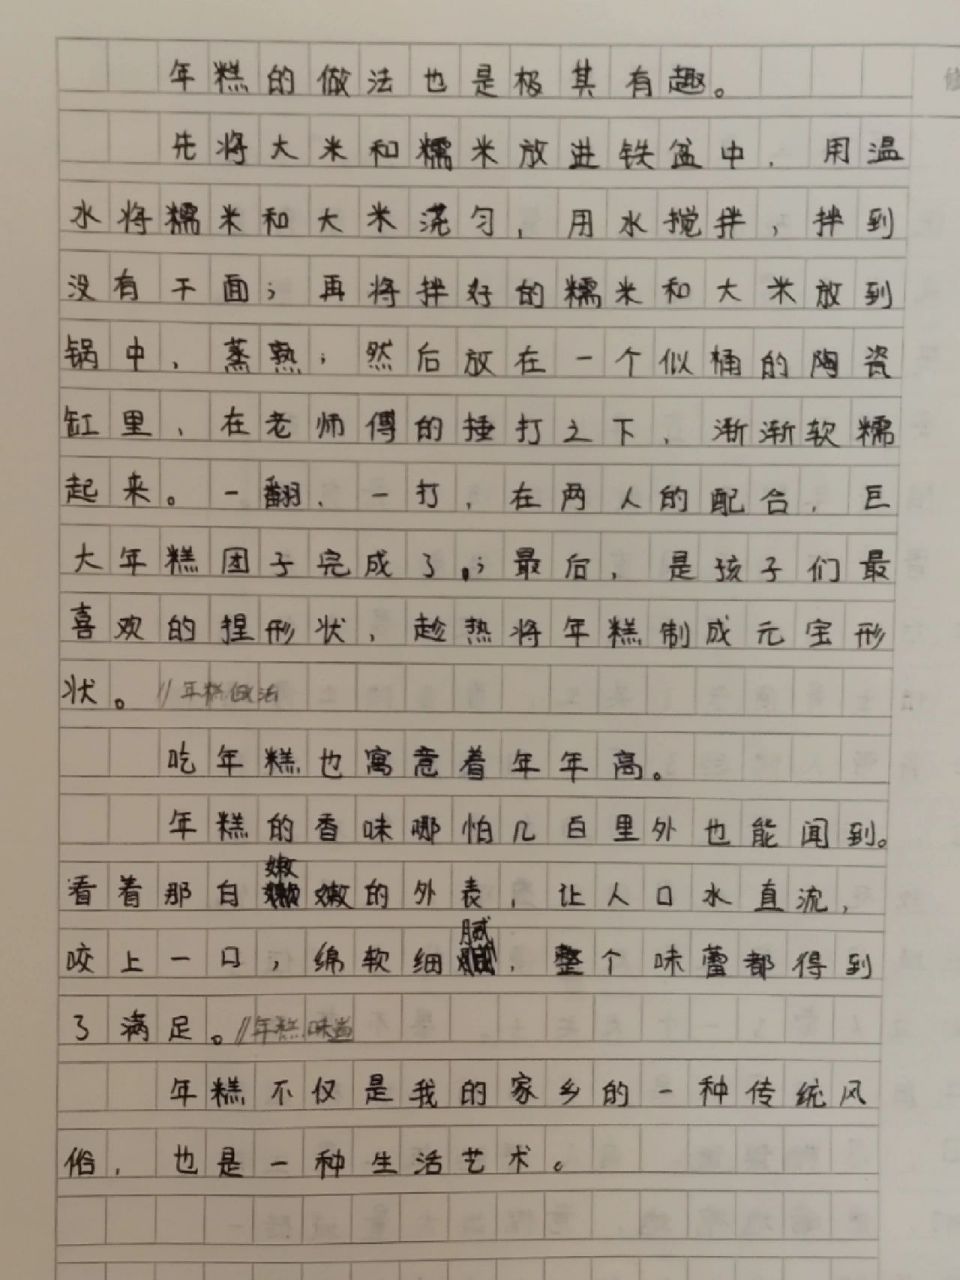 年糕的做法也是极其有趣。
先将大米和糯米放进铁盆中，用温
水将糯米和大米混匀，用水搅拌，拌到
没有干面；再将拌好的糯米和大米放到
锅中，蒸熟；然后放在一个似桶的陶瓷
缸里，在老师傅的捶打之下，渐渐软糯
起来。一翻、一打，在两人的配合，巨
大年糕团子完成了；最后，是孩子们最
喜欢的捏形状，趁热将年糕制成元宝形
状。//年糕做法
吃年糕也寓意着年年高。
年糕的香味哪怕几百里外也能闻到。
看着那白嫩嫩的外表，让人口水直流，
咬上一口，绵软细腻，整个味蕾都得到
了满足。//年糕味道
年糕不仅是我的家乡的一种传统风
俗，也是一种生活艺术。